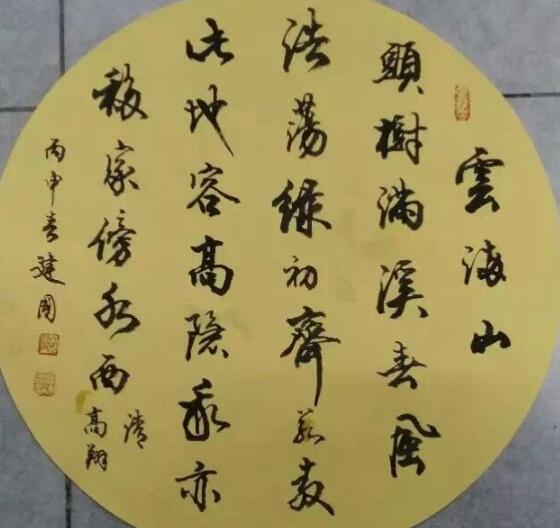 雲滿山
頭樹滿溪春風
浩蕩綠初齊若教
此地容高隱我亦
移家傍水西
清
高翔
丙申春建國